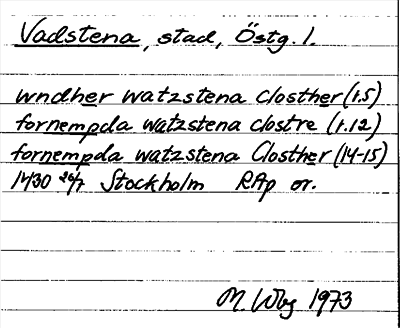 Vadstena, stad, Östg. l.
wndher watzstena closther (1.5)
fornempda watzstena clostre (1.12)
fornempda watzstena Closther (14-15)
1430 26/7 Stockholm RAp or.
M. Wbg 1973